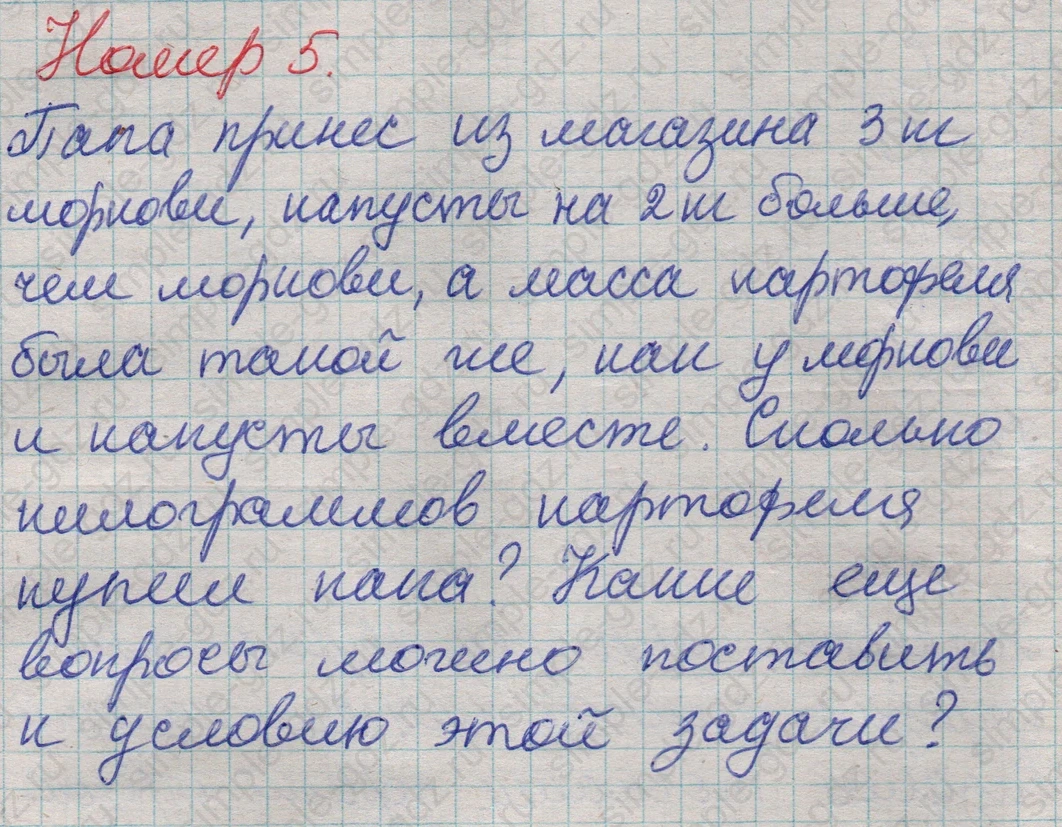 Номер 5.
Папа принес из магазина 3 кг
моркови, капусты на 2 кг больше,
чем моркови, а масса картофеля
была такой же, как у моркови
и капусты вместе. Сколько
килограммов картофеля
купил папа? Какие еще
вопросы можно поставить
к условию этой задачи?